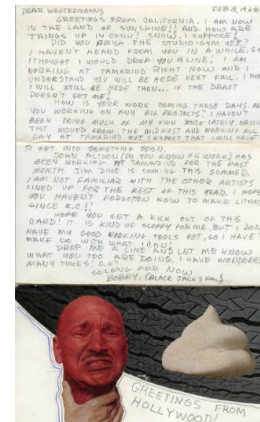 DEAR WESTERMANNS FEB 8, 1968
GREETINGS FROM CALIFORNIA. I AM NOW
IN THE LAND OF SUNSHINE!! AND HOW ARE
THINGS UP IN CONN? SNOW, I SUPPOSE!
DID YOU FINISH THE STUDIO-GYM YET?
I HAVEN'T HEARD FROM YOU IN A WHILE, SO
I THOUGHT I WOULD DROP YOU A LINE! I AM
WORKING AT TAMARIND RIGHT NOW AND I
UNDERSTAND YOU WILL BE HERE NEXT FALL. I HOPE
I WILL STILL BE HERE THEN... IF THE DRAFT
DOESN'T GET ME!
HOW IS YOUR WORK COMING THESE DAYS. ARE
YOU WORKING ON ANY BIG PROJECTS? I HAVEN'T
BEEN DOING MUCH OF MY OWN WORK LATELY HAVING
JUST MOVED FROM THE MIDWEST AND WORKING ALL
DAY AT TAMARIND BUT I EXPECT THAT I WILL HAVE
TO GET INTO SOMETHING SOON.
JOHN ALTOON (DO YOU KNOW HIS WORK) HAS
BEEN WORKING AT TAMARIND FOR THE PAST
MONTH. JIM DINE IS COMING THIS SUMMER.
I AM NOT FAMILIAR WITH THE OTHER ARTISTS
LINED UP FOR THE REST OF THIS YEAR. I HOPE
YOU HAVEN'T FORGOTTEN HOW TO MAKE LITHOS
SINCE K.C.!!
HOPE YOU GET A KICK OUT OF THIS
CARD! IT IS KIND OF SLOPPY FOR ME, BUT I DON'T
HAVE MY GOOD WORKING TOOLS YET, SO I HAVE TO
MAKE DO WITH WHAT I CAN!
DROP ME A LINE AND LET ME KNOW
WHAT YOU TOO ARE DOING. I HAVE WONDERED
MANY TIMES! O.K.?
SO LONG FOR NOW
BOBBY. (BLACK JACK'S PAL)
GREETINGS FROM
HOLLYWOOD!